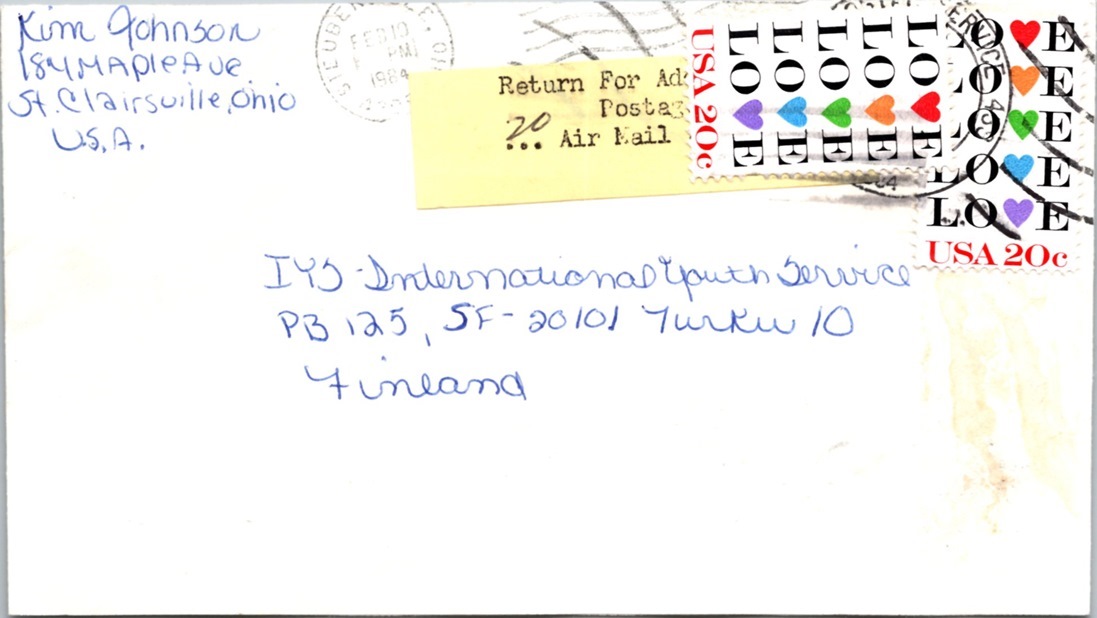 Kim Johnson
184 Maple Ave
St. Clairsville, Ohio
U.S.A.
FEB 10
PM
1984
Return For Ad
Postag
20
... Air Mail
LOVE
LOVE
LOVE
LOVE
LOVE
USA 20c
LO♥E
LO♥E
LO♥E
LO♥E
LO♥E
USA 20c
IYS - International Youth Service
PB 125, SF-20101 Turku 10
Finland